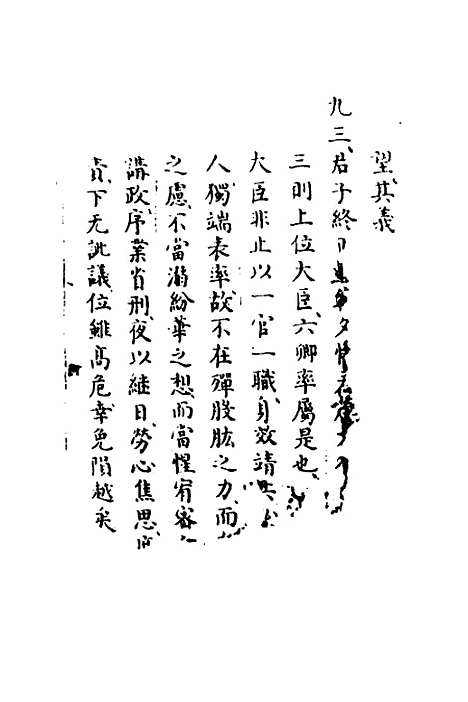 望其義
九三君子終日乾乾夕惕若
三則上位大臣六卿率屬是也
大臣非止以一官一職身效靖共
人獨端表率故不在殫股肱之力而
之慮不當溺紛華之想而當惺宥密
講政序業省刑夜以継日勞心焦思
責下无訿議位雖髙危幸免隕越矣